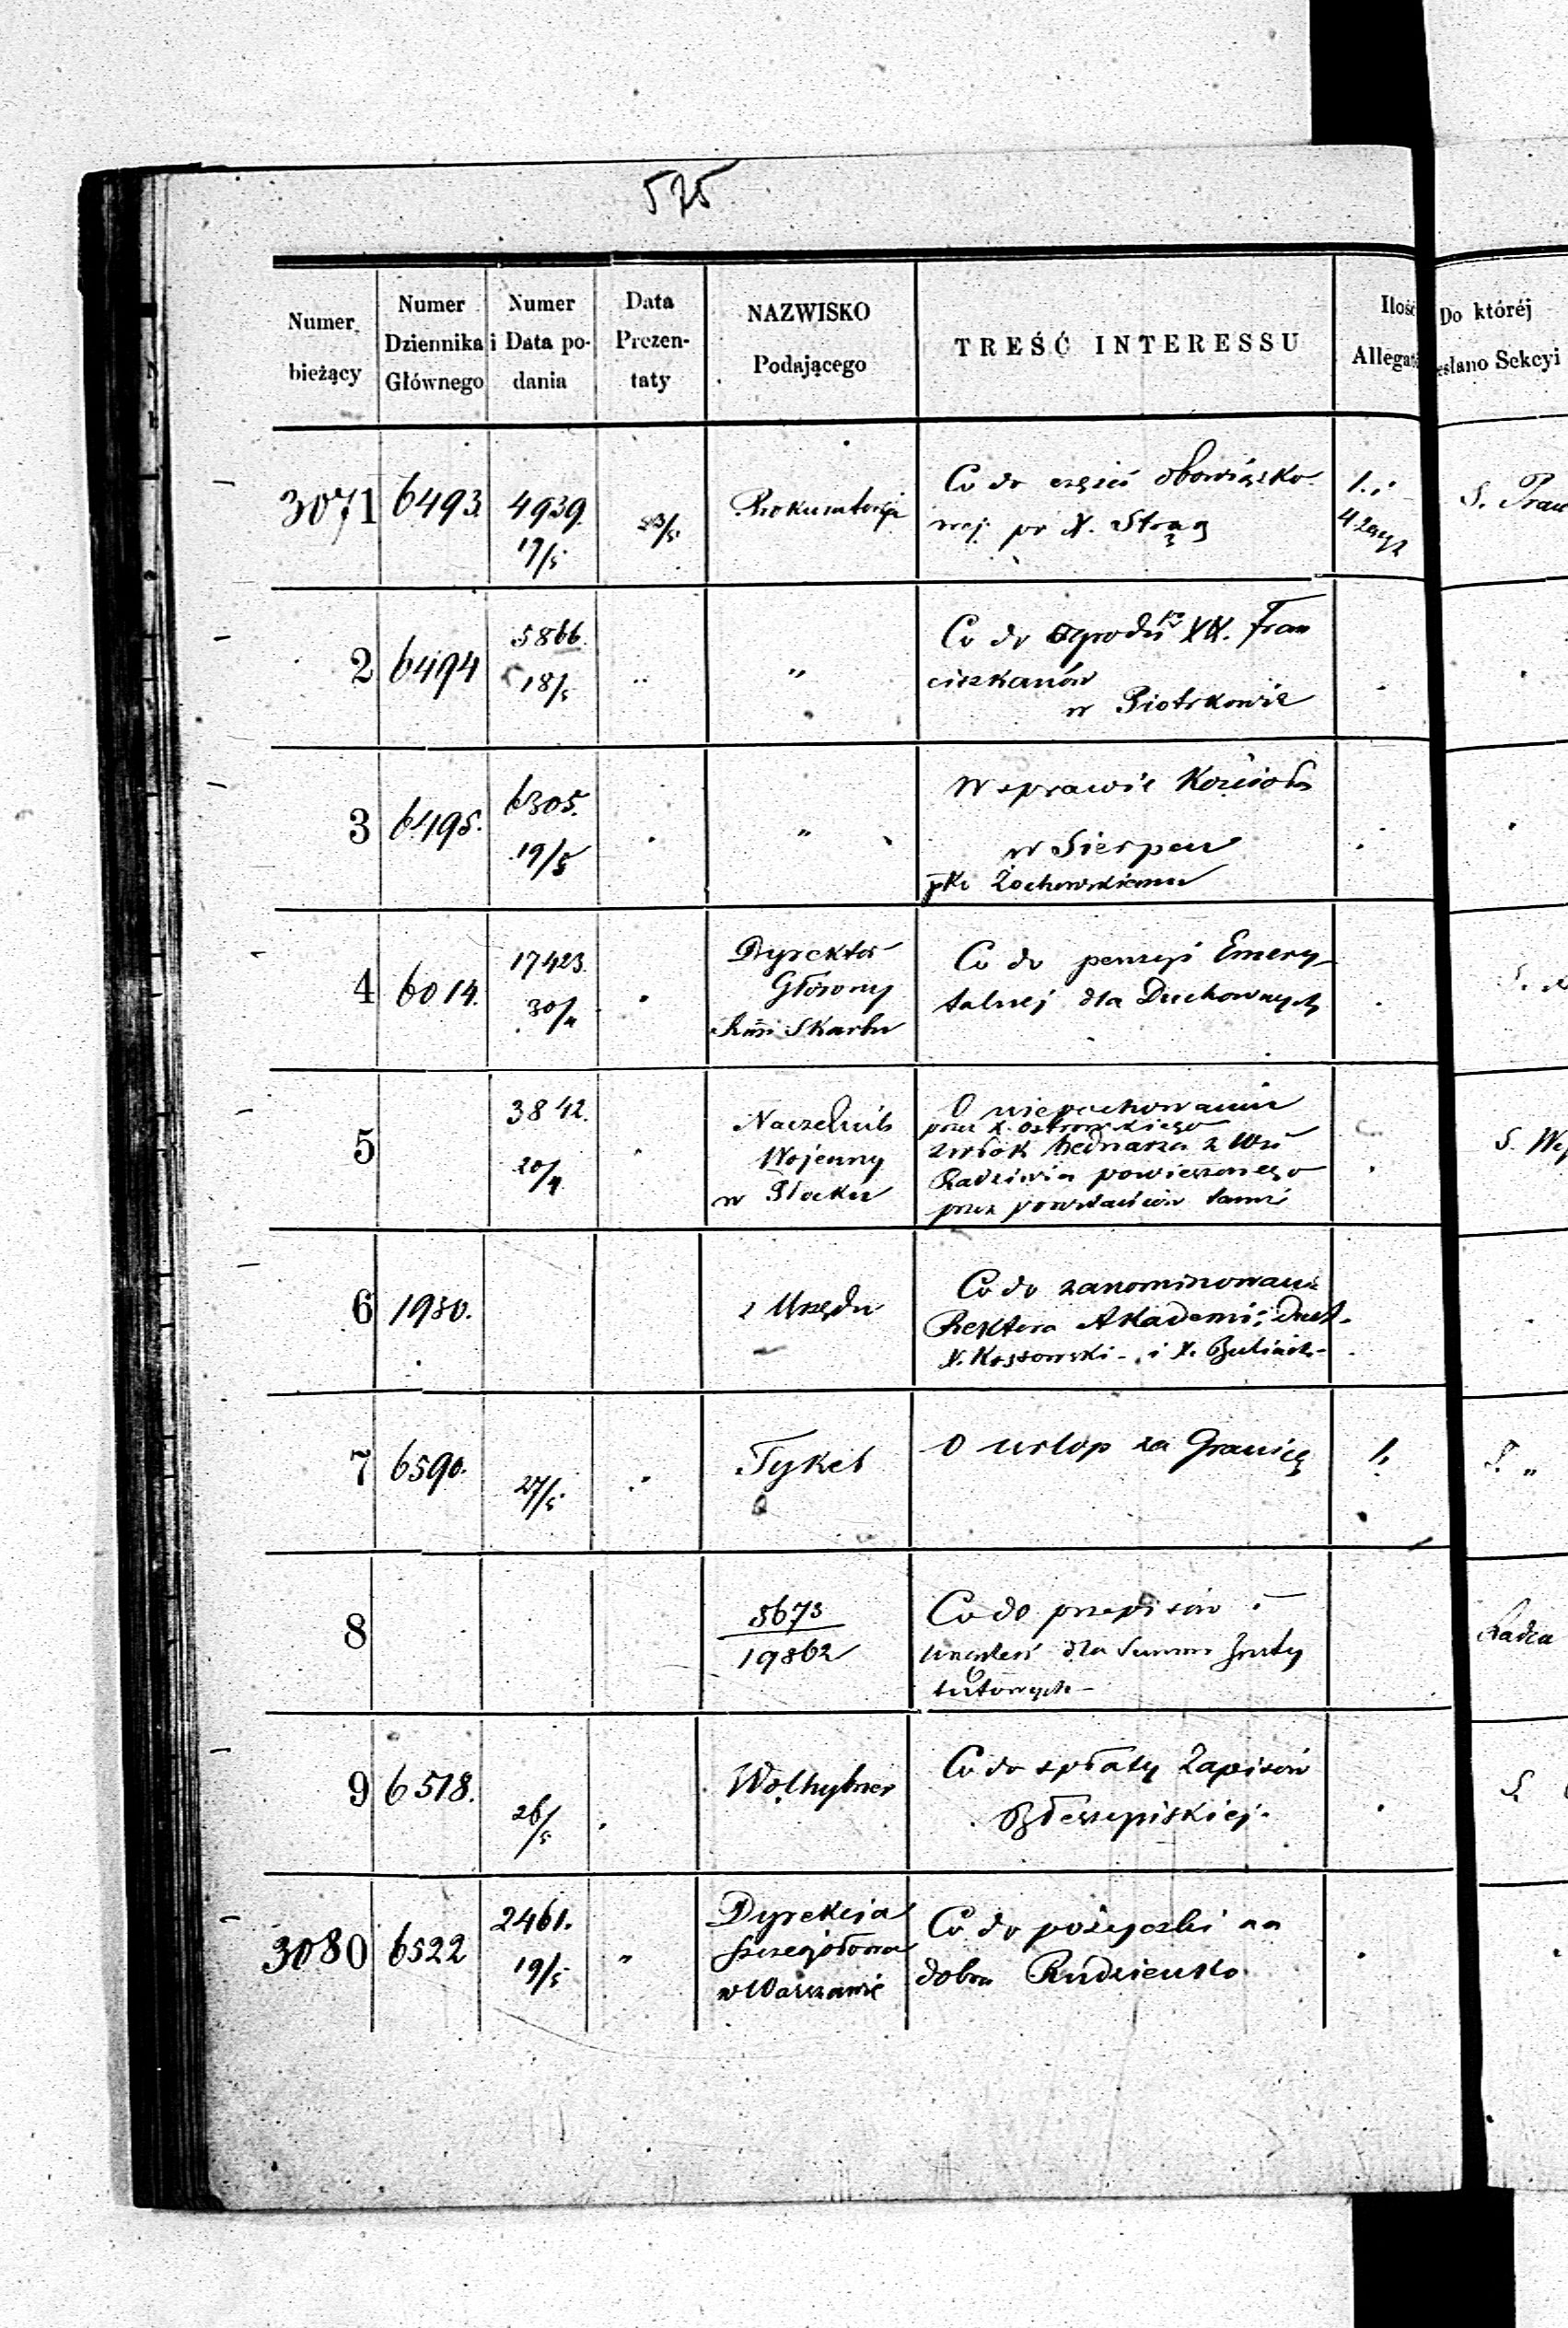 575
Numer bieżący
Numer Dziennika Głównego
Numer i Data podania
Data Prezentaty
NAZWISKO Podającego
TREŚĆ INTERESSU
Ilość Allegat
Do któréj
esłano Sekcyi
3071 6493. 4939. 17/5 23/5 Prokuratorya
Co do części obowiązko
wej pr X. Strąg
1.
S. Praw
2 6494 5866. 18/5 " "
Co do ogrodu XX. Fran
ciszkanów
w Piotrkowie
3 6495. 6305. 19/5 "
W sprawie Kościoła
w Sierpcu
pko Żochowskiemu
4 6014. 17423. 30/4
Dyrektor
Główny
Skarbu
Co do pensyi Emery-
talnej dla Duchownych
S.
5 3842. 20/4
Naczelnik
Wojenny
w Płocku
O niepochowaniu
przez X. Ostrowskiego
zwłok bednarza z Wsi
Radziwia powieszonego
przez powstańców
S. Wy
6 1980. z Urzędu
Co do zanominowania
Rektora Akademii Duch.
X. Kossowski i X.
7 6590. 27/5 Tykel
O urlop za Granicę
1.
S. "
8 5673
19862
Co do przepisów i
dla Summ Insty
tutowych
Radca
9 6518. 26/5
Co do spłaty Zapisów
S.
3080 6522 2461. 19/5 "
Dyrekcja
Szczegółowa
w Warszawie
Co do pożyczki na
dobra Rudzienko